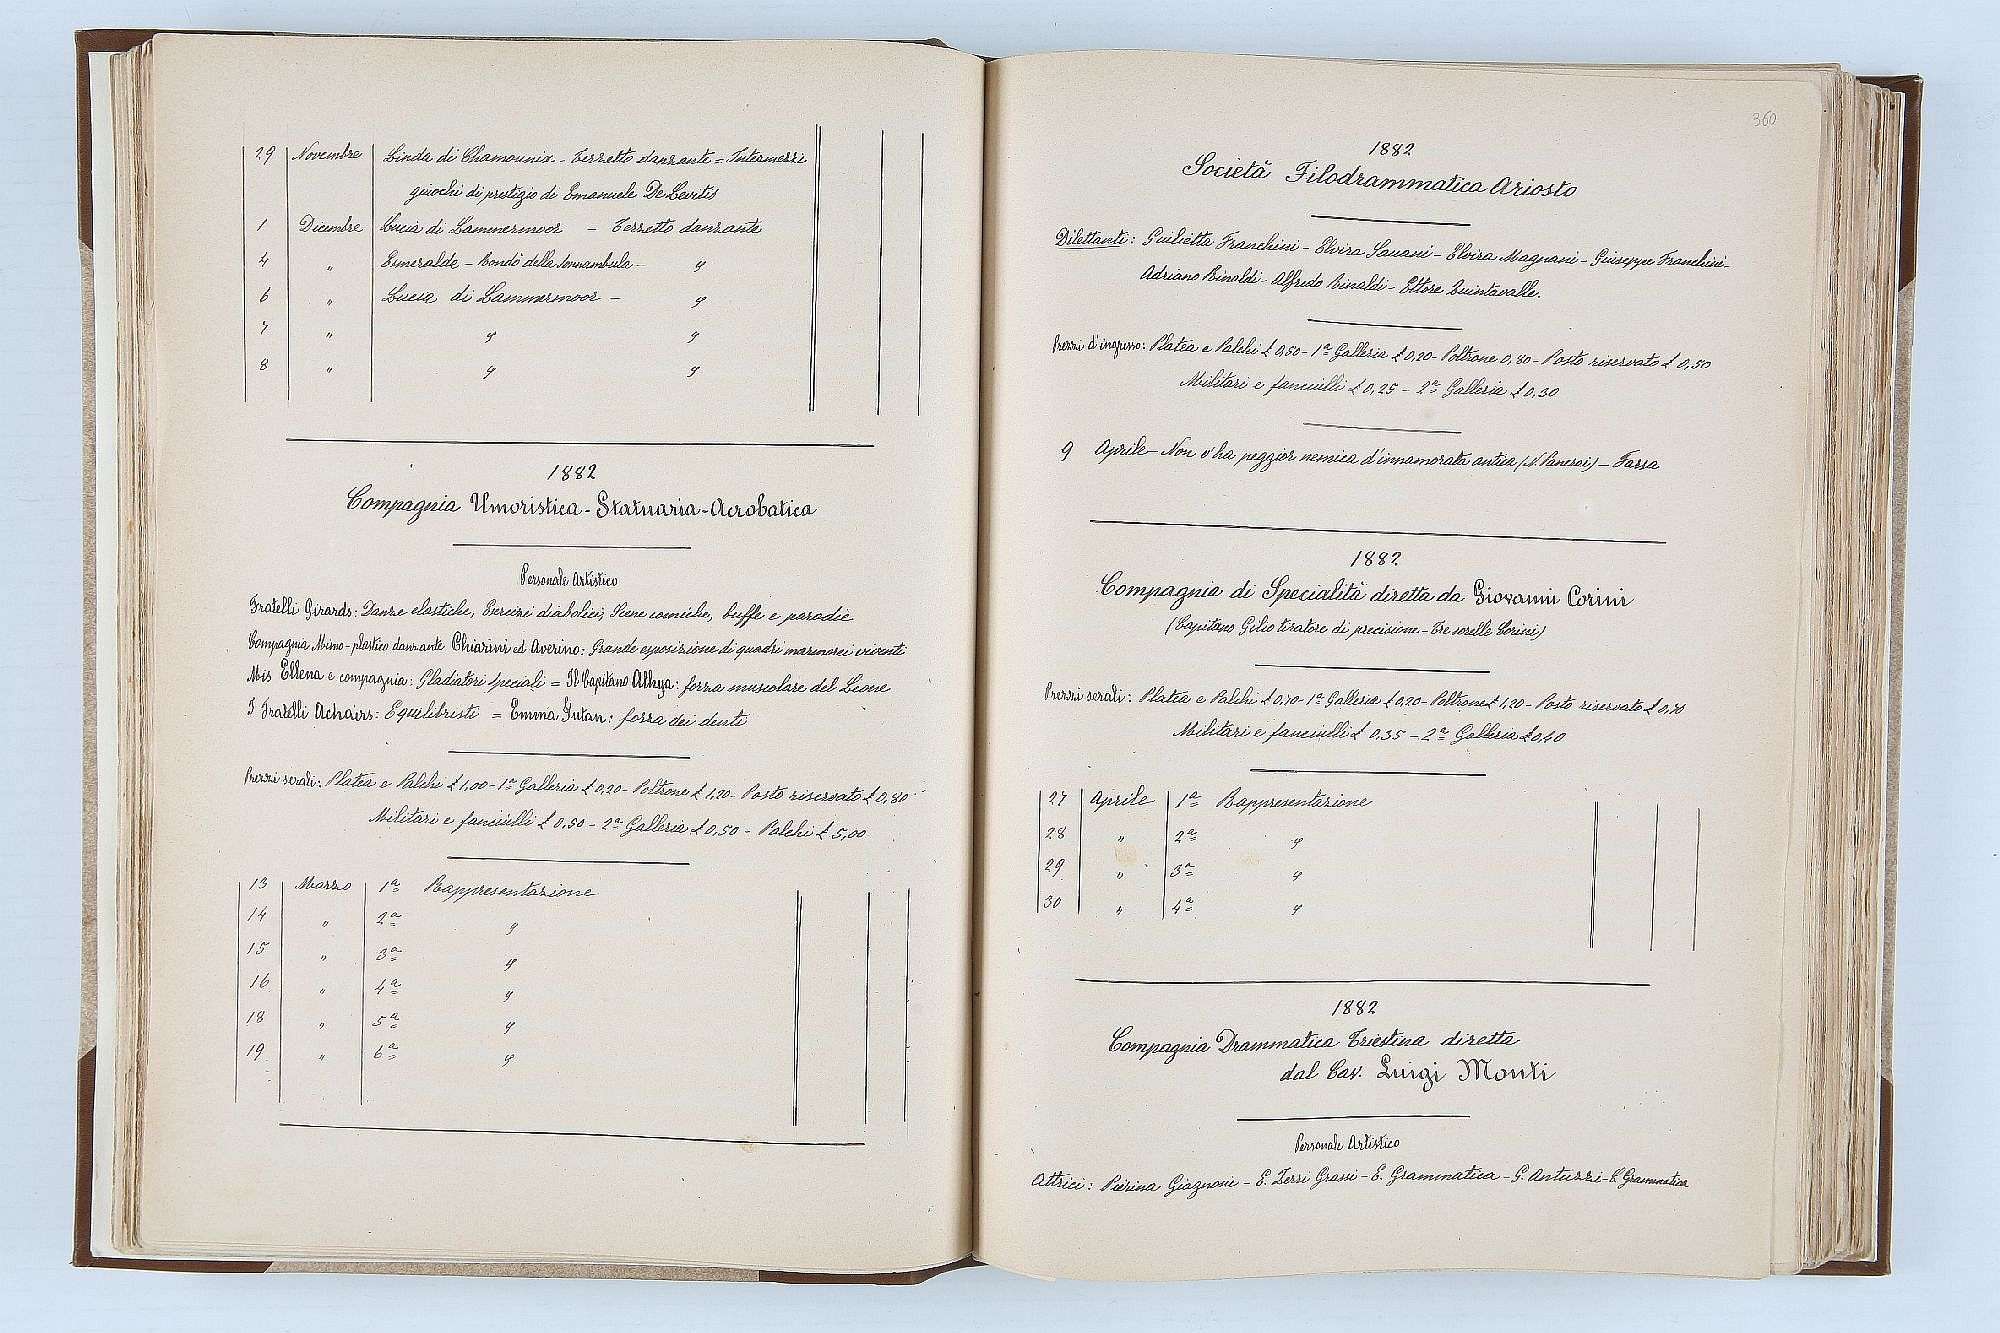 29 Novembre Linda di Chamounix - Terzetto danzante = Intermezzi
giuochi di prestigio di Emanuele De Levitis
1 Dicembre Lucia di Lammermoor - Terzetto danzante
4 " Esmeralda - Rondò della Sonnambula - "
6 " Lucia di Lammermoor - "
7 " " "
8 " " "
1882
Compagnia Umoristica - Statuaria - Acrobatica
Personale Artistico
Fratelli Girards: Danze elastiche, Esercizi diabolici, Scene comiche, buffe e parodie
Compagnia Mimo-plastico danzante Chiarini ed Averino: Grande esposizione di quadri marmorei viventi
Mis Ellena e compagnia: Gladiatori speciali = Il Capitano Alhya: forza muscolare del Leone
I Fratelli Achairs: Equilibristi = Emma Jutan: forza dei denti
Prezzi serali: Platea e Palchi £ 1,00 - 1ª Galleria £ 0,20 - Poltrone £ 1,20 - Posto riservato £ 0,80
Militari e fanciulli £ 0,50 - 2ª Galleria £ 0,50 - Palchi £ 5,00
13 Marzo 1ª Rappresentazione
14 " 2ª "
15 " 3ª "
16 " 4ª "
18 " 5ª "
19 " 6ª "
360
1882
Società Filodrammatica Ariosto
Dilettanti: Giulietta Franchini - Elvira Savani - Elvira Magnani - Giuseppe Franchini -
Adriano Rinaldi - Alfredo Rinaldi - Ettore Quintavalle.
Prezzi d'ingresso: Platea e Palchi £ 0,50 - 1ª Galleria £ 0,20 - Poltrone 0,80 - Posto riservato £ 0,50
Militari e fanciulli £ 0,25 - 2ª Galleria £ 0,30
9 Aprile - Non v'ha peggior nemica d'innamorata antica (N. Panerai) - Farsa
1882
Compagnia di Specialità diretta da Giovanni Corini
(Capitano Gilio tiratore di precisione - Tre sorelle Corini)
Prezzi serali: Platea e Palchi £ 0,70 - 1ª Galleria £ 0,20 - Poltrone £ 1,20 - Posto riservato £ 0,70
Militari e fanciulli £ 0,35 - 2ª Galleria £ 0,40
27 Aprile 1ª Rappresentazione
28 " 2ª "
29 " 3ª "
30 " 4ª "
1882
Compagnia Drammatica Triestina diretta
dal Cav. Luigi Monti
Personale Artistico
Attrici: Pierina Giagnoni - E. Zerri Grassi - E. Grammatica - G. Antuzzi - E. Grammatica